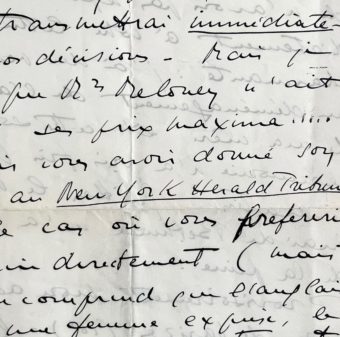 transmettrai immédiate-
vos décisions - Mais je
que Mrs Meloney n'ait
ses prix maxima.....
vous avoir donné son
au New York Herald Tribun
le cas où vous préférerie
directement (mais
comprend que l'anglai
une femme exquise, le